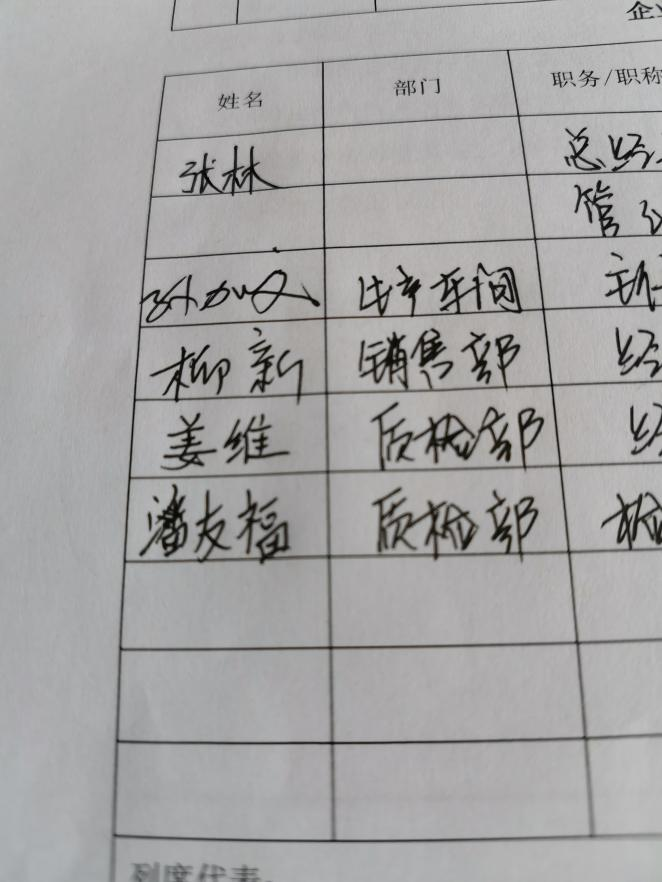 企业
姓名 部门 职务/职称
张林 总经
管
孙加义 生产车间 班
柳新 销售部 经
姜维 质检部 经
潘友福 质检部 检
列席代表: